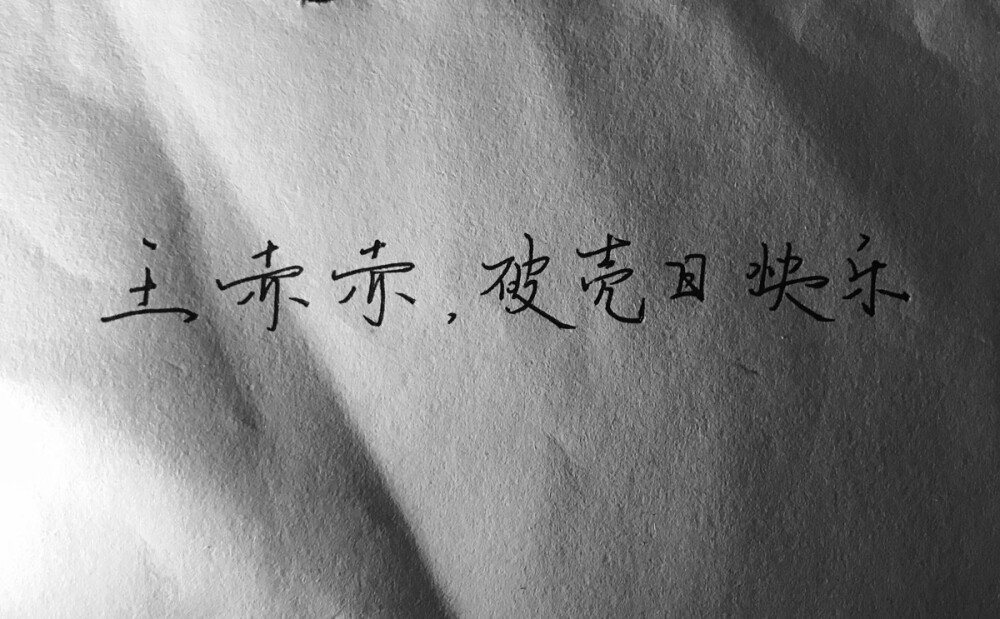 主赤赤，破壳日快乐